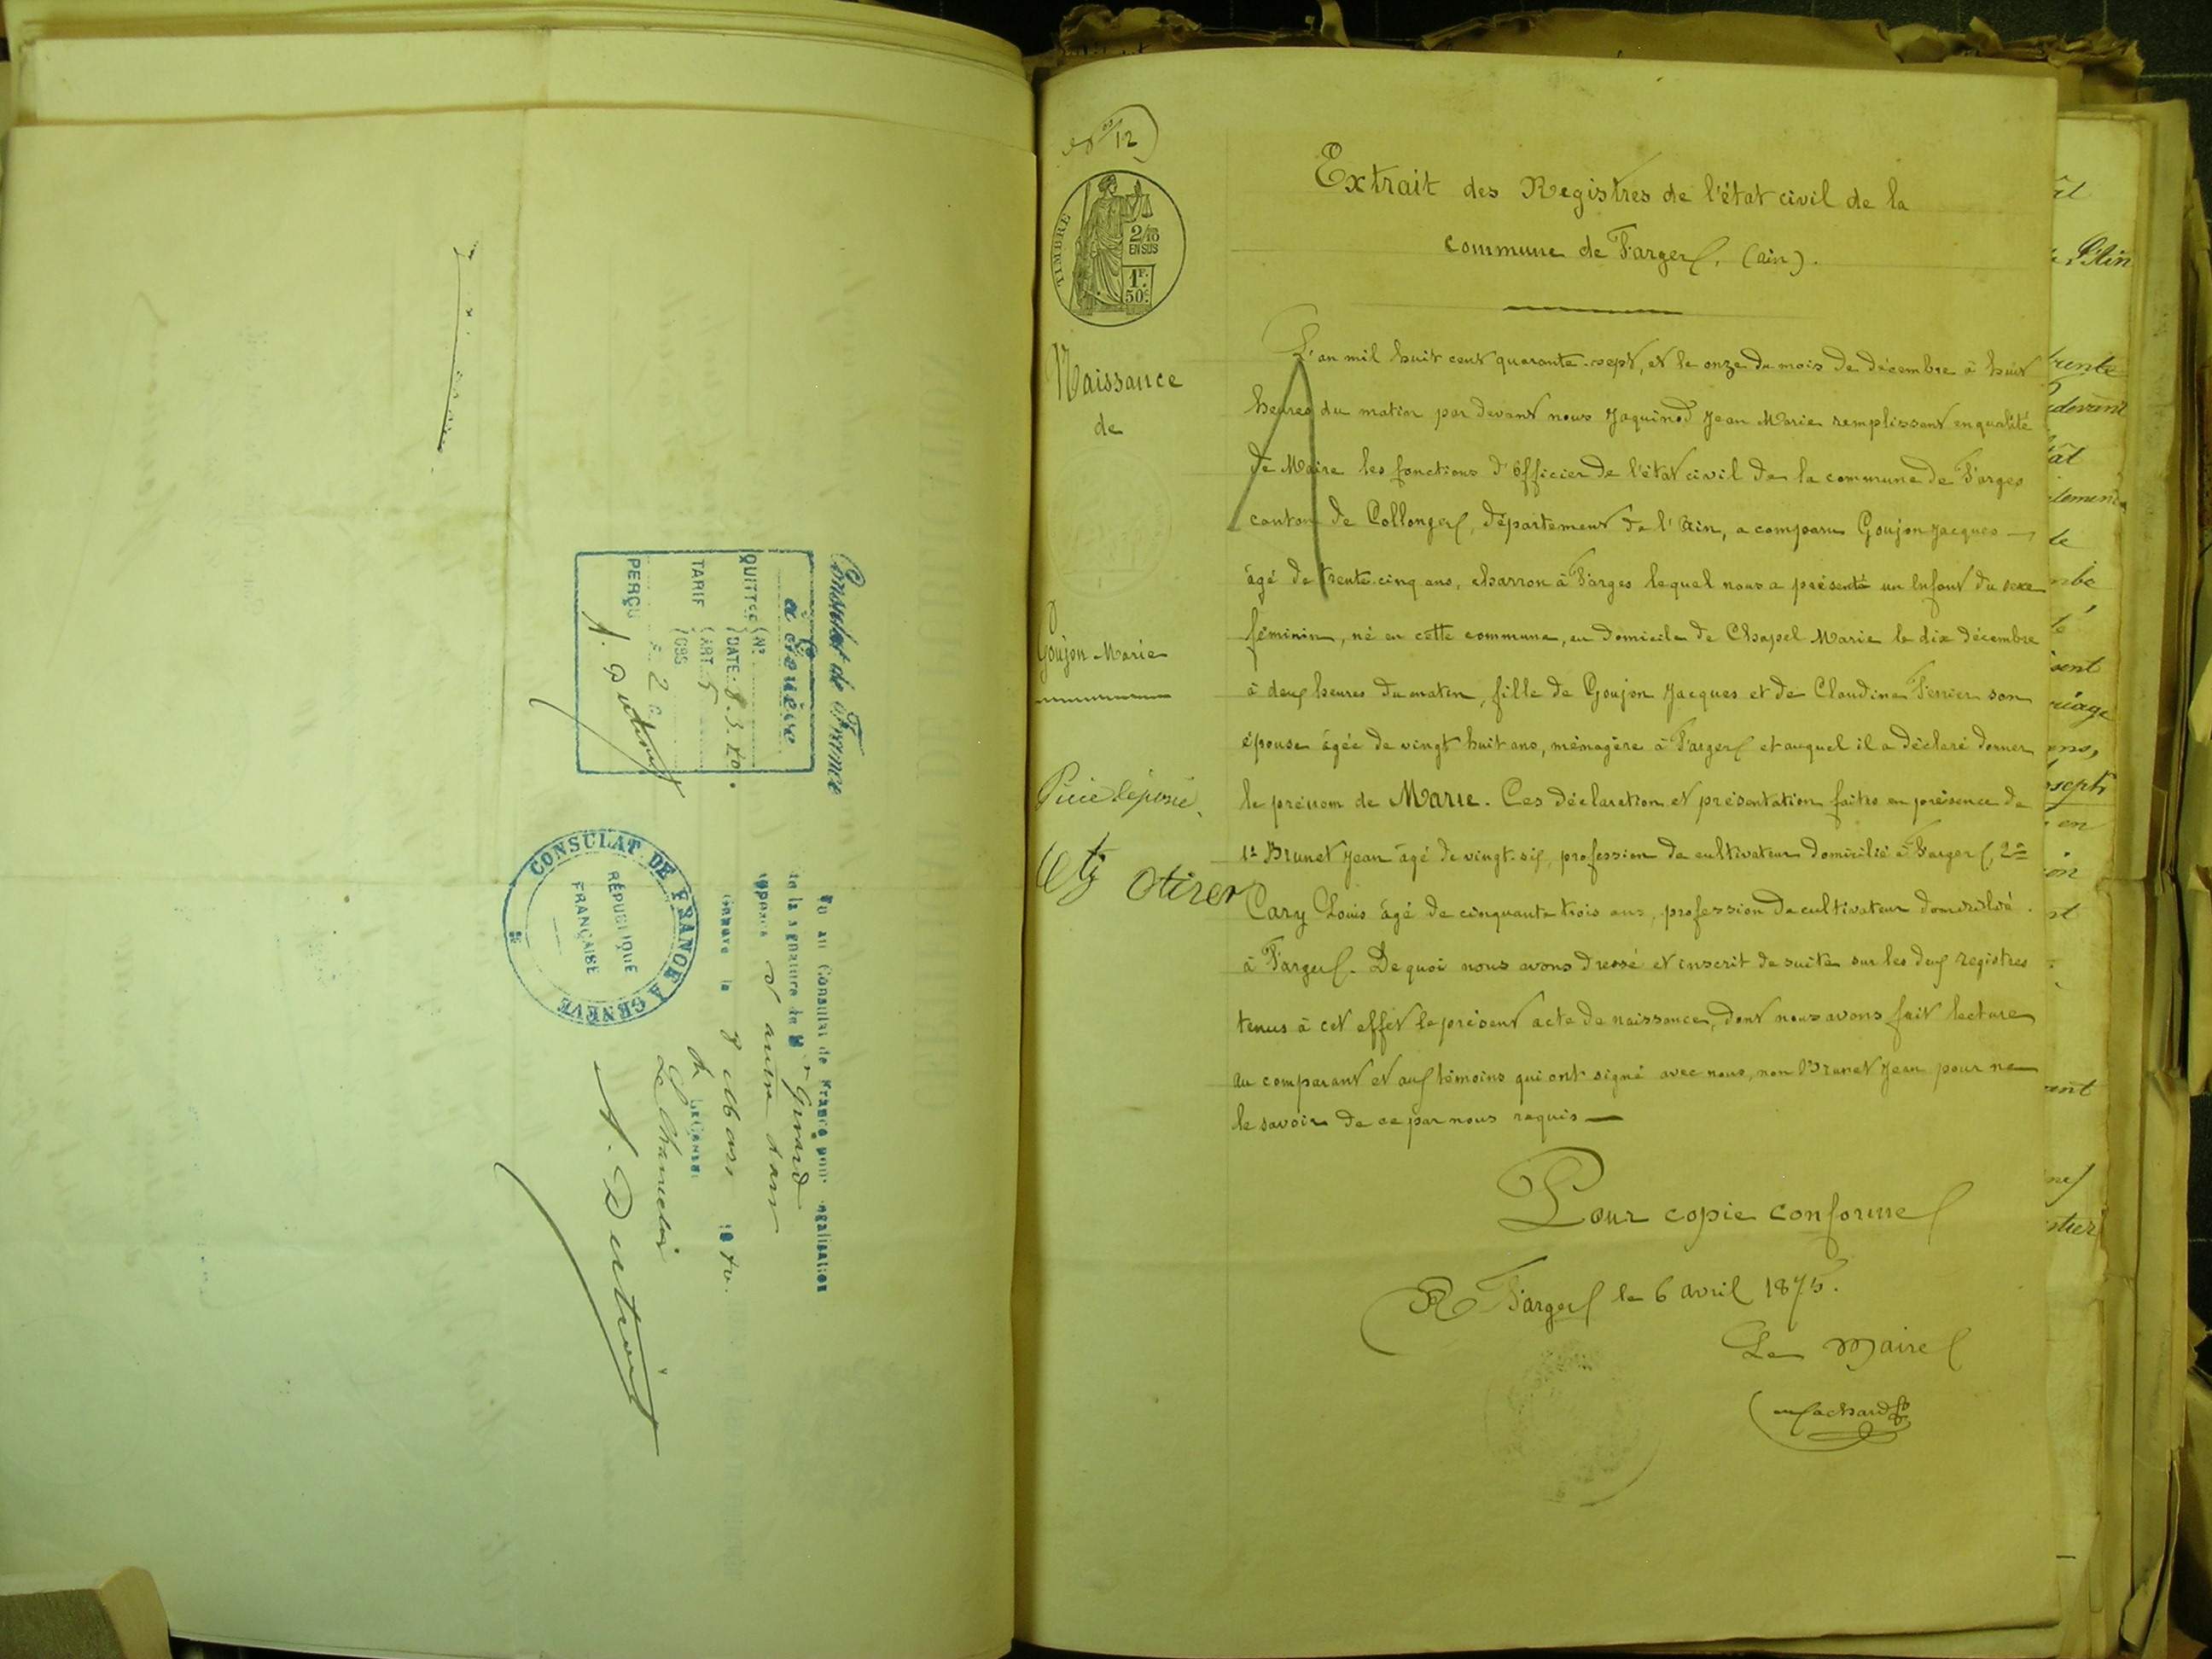 Consulat de France
à Genève
QUITTCE Nº
DATE. 8.3.
TARIF ART. 5
OBS
PERÇU F. 2 C.
Vu au Consulat de France pour légalisation
de la signature de Mr Girard
apposée d'autre part
Genève le 8 Mars 18
Le Chancelier
CONSULAT DE FRANCE A GENÈVE
RÉPUBLIQUE
FRANÇAISE
12
TIMBRE
2/10
EN SUS
1F.
50c.
Extrait des Registres de l'état civil de la
commune de Farges. (ain).
Naissance
de
Goujon Marie
Pièce déposée.
L'an mil huit cent quarante-sept, et le onze du mois de décembre à huit
heures du matin par devant nous Jaquinod Jean Marie remplissant en qualité
de Maire les fonctions d'Officier de l'état civil de la commune de Farges
canton de Collonges, département de l'Ain, a comparu Goujon Jacques —
âgé de trente-cinq ans, charron à Farges lequel nous a présenté un Enfant du sexe
féminin, né en cette commune, au domicile de Chapel Marie le dix décembre
à deux heures du matin, fille de Goujon Jacques et de Claudine Perrier son
épouse âgée de vingt huit ans, ménagère à Farges et auquel il a déclaré donner
le prénom de Marie. Ces déclaration et présentation faites en présence de
1º Brunet Jean âgé de vingt-six, profession de cultivateur domicilié à Farges, 2º
Cary Louis âgé de cinquante trois ans, profession de cultivateur domicilié
à Farges. De quoi nous avons dressé et inscrit de suite sur les deux registres
tenus à cet effet le présent acte de naissance, dont nous avons fait lecture
au comparant et aux témoins qui ont signé avec nous, non Brunet Jean pour ne
le savoir de ce par nous requis —
Pour copie conforme
A Farges le 6 avril 1875.
Le Maire